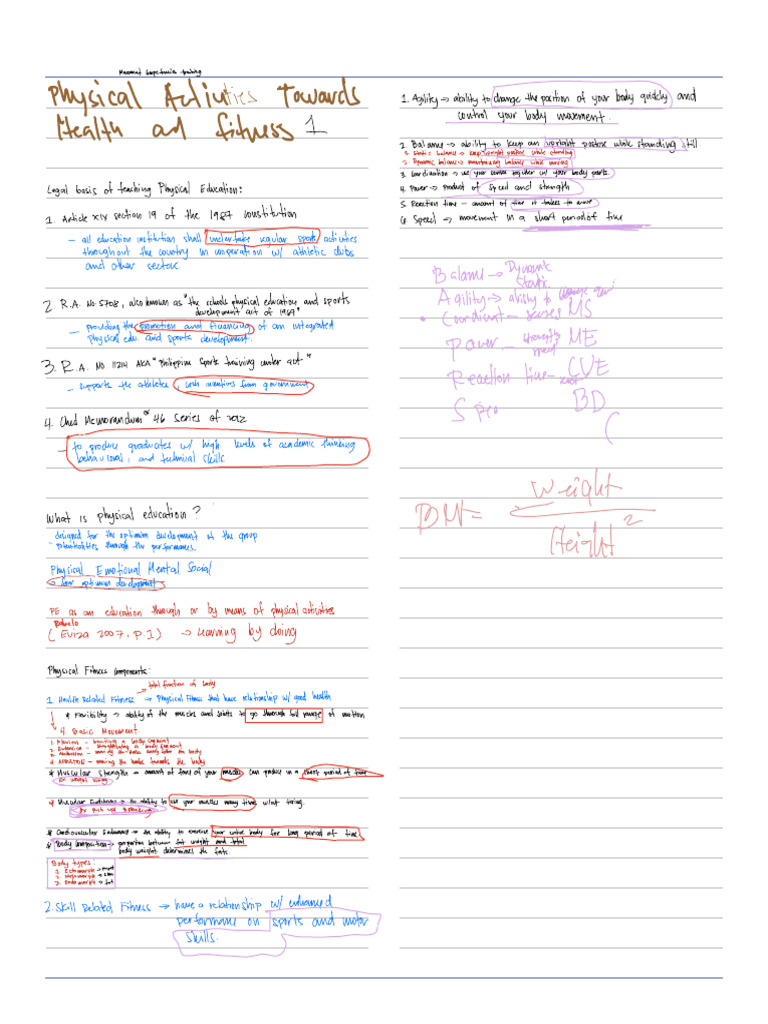 Movement Competencie training
Physical Activities Towards
Health and fitness 1
Legal basis of teaching Physical Education:
1. Article XIV section 19 of the 1987 constitution
- all education institution shall undertake regular sports activities
throughout the country in cooperation w/ athletic clubs
and other sector
2. R.A. No 5708, also known as "the schools physical education and sports
development act of 1969"
- providing the promotion and financing of an integrated
physical edu and sports development.
3. R.A. No. 11214 AKA "Philippine Sports training center act"
- supports the athletes, cash incentives from government
4. Ched Memorandum 46 series of 2012
- to produce graduates w/ high levels of academic thinking
behavioral, and technical skills
What is physical education?
- designed for the optimum development of the group
- potentialities through the performances.
Physical Emotional Mental Social
for optimum development
PE as an education through or by means of physical activities
(Eviza 2007, P.1) → learning by doing
Physical Fitness Components:
total function of body
1. Health Related Fitness → Physical Fitness that have relationship w/ good health
* Flexibility → ability of the muscles and joints to go through full range of motion
4 Basic Movement
1. Flexion -
2. Extension -
3. Abduction -
4. - moving the limbs towards the body
* Muscular Strength → amount of force of your muscles can produce in a short period of time
* Muscular Endurance → the ability to use your muscles many times w/out tiring.
* Cardiovascular Endurance → the ability to exercise your entire body for long period of time
* Body Composition → proportion between fat weight and total
body weight determines the fats.
Body types:
1. Ectomorph →
2. Mesomorph → slim
3. Endomorph → fat
2. Skill Related Fitness → have a relationship w/ enhanced
performance on sports and motor
skills.
1. Agility → ability to change the position of your body quickly and
control your body movement.
2. Balance → ability to keep an upright posture while standing still
1. Static balance → keep upright posture while standing
2. Dynamic balance → maintaining balance while moving
3. Coordination → use your senses together w/ your body parts.
4. Power → product of speed and strength
5. Reaction time - amount of time it takes to move
6. Speed → movement in a short period of time
Balance → Dynamic
Static
Agility → ability to change
Coordinat - senses MS
Power - strength ME
speed
Reaction time - CVE
Spee BD
(
BMI = Weight
Height 2